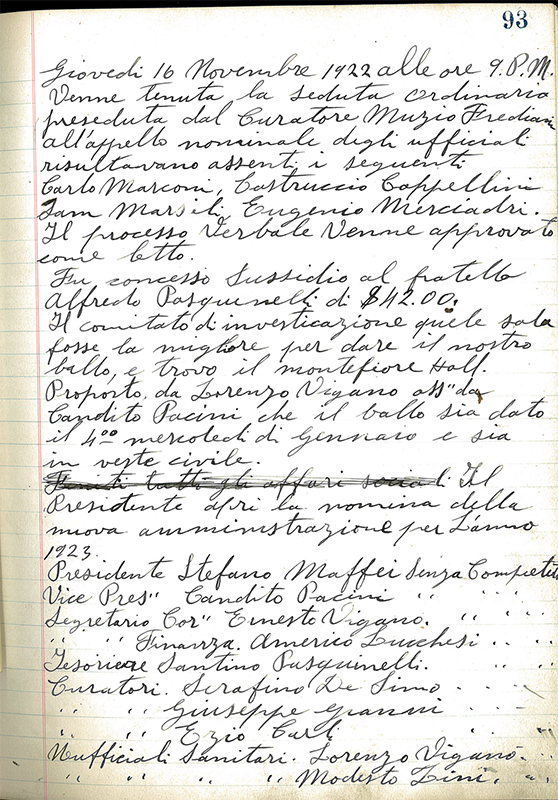 93
Giovedi 16 Novembre 1922 alle ore 9. P.M.
Venne tenuta la seduta ordinaria
preseduta dal Curatore Muzio Frediani
all'appello nominale degli ufficiali
risultavano assenti i seguenti
Carlo Marconi, Castruccio Cappellini
Sam Marsili, Eugenio Merciadri.
Il processo Verbale Venne approvato
come letto.
Fu concesso Sussidio al fratello
Alfredo Pasquinelli di $42.00.
Il comitato di investicazione quele sala
fosse la migliore per dare il nostro
ballo, e trovo il montefiore Hall.
Proposto da Lorenzo Vigano ass" da
Candito Pacini che il ballo sia dato
il 4oo mercoledi di Gennaio e sia
in veste civile.
Finiti tutti gli affari sociali. Il
Presidente apri la nomina della
nuova amministrazione per L'anno
1923.
Presidente Stefano Maffei Senza Competit
Vice Pres" Candito Pacini " "
Segretario Cor" Ernesto Vigano. " " "
" " Finanza. Americo Lucchesi " "
Tesoriere Santino Pasquinelli. " "
Curatori. Serafino De Simo " "
" " Giuseppe Gianni " "
" " Ezio Carli " "
Uufficiali Sanitari. Lorenzo Vigano. " "
" " " " Modesto Zini. " "